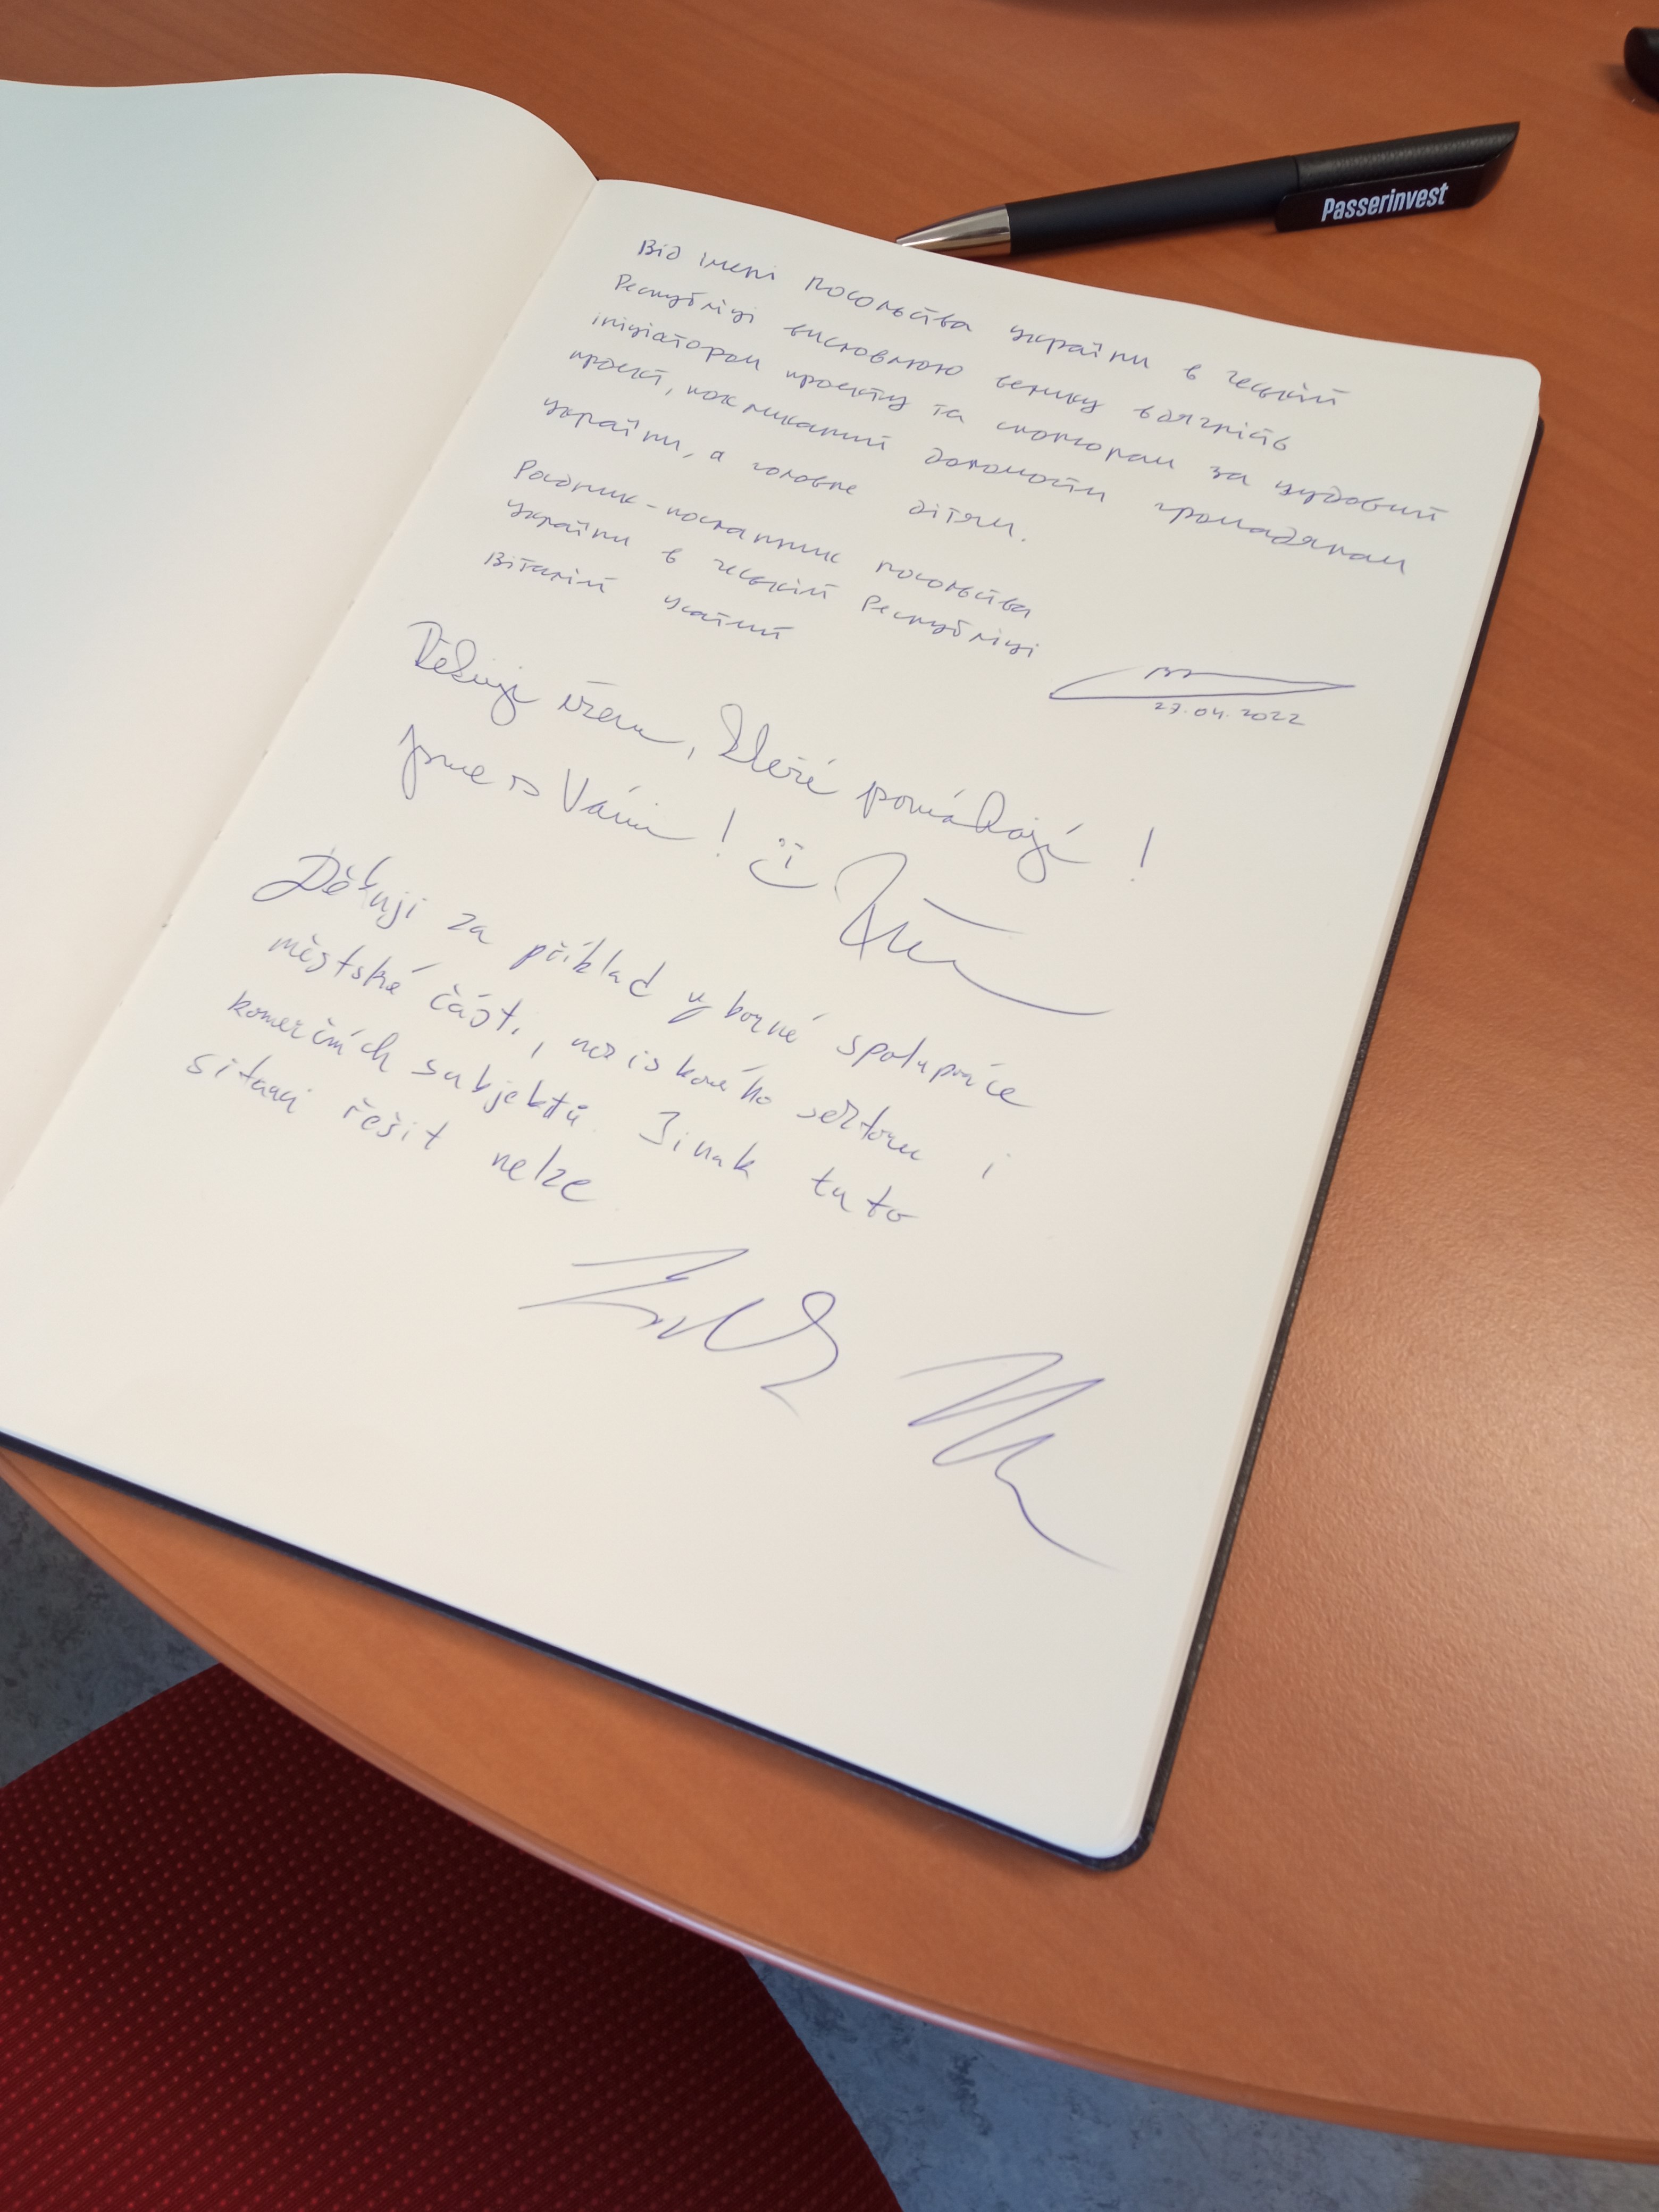 Passerinvest
Від імені посольства України в Чеській
Республіці висловлюю велику вдячність
ініціаторам проекту та спонсорам за чудовий
проект, покликаний допомогти громадянам
України, а головне дітям.
Радник-посланник посольства
України в Чеській Республіці
Віталій Усатий
27.04.2022
Děkuji všem, které pomáhají!
Jsme s Vámi!
Děkuji za příklad výborné spolupráce
městské části, neziskového sektoru i
komerčních subjektů. Jinak tuto
situaci řešit nelze.